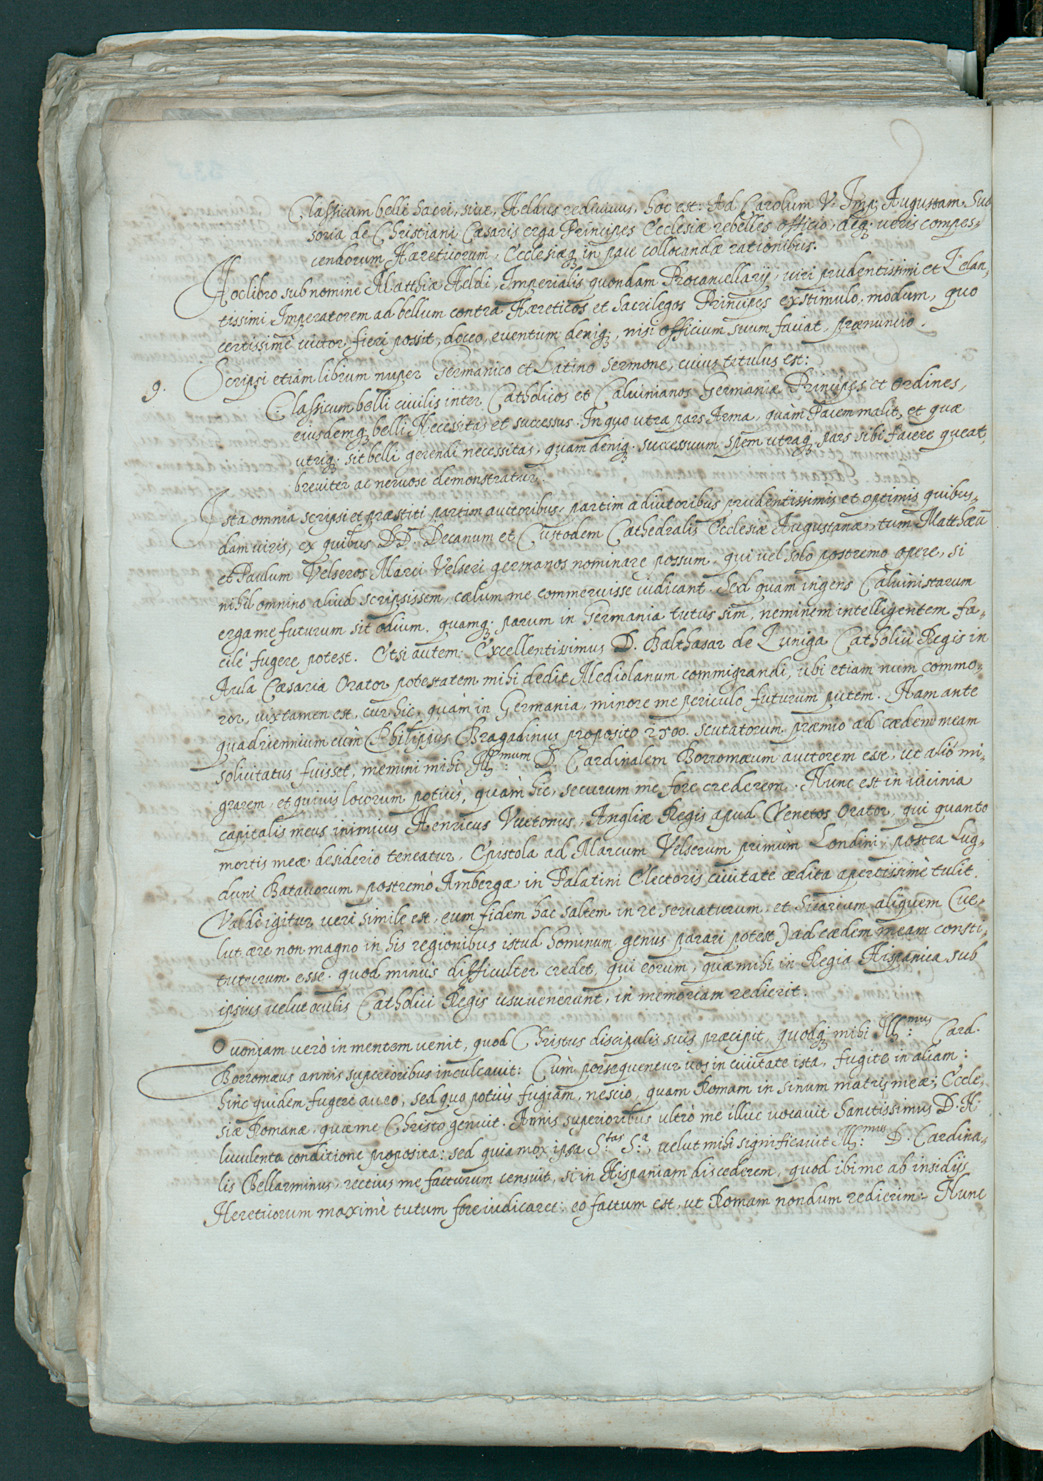 Classicum belli sacri, siue, Heldus rediuiuus, hoc est: Ad Carolum V. Imp. Augustum Sua
soria de Christiani Cæsaris erga Principes Ecclesiæ rebelles officio, deq; veris compes-
cendorum Hæreticorum, Ecclesiæq; in pace collocandæ rationibus.
Hoc libro sub nomine Matthiæ Heldi, Imperialis quondam Procancellarij, viri prudentissimi et Zelan
tissimi Imperatorem ad bellum contra Hæreticos et Sacrilegos Principes exstimulo, modum, quo
certissimè victor fieri possit, doceo, euentum deniq; nisi officium suum faciat, prænuncio.
9. Scripsi etiam librum nuper Germanico et Latino Sermone, cuius titulus est:
Classicum belli ciuilis inter Catholicos et Caluinianos Germaniæ Principes et Ordines,
eiusdemq; belli Necessitas et successus. In quo vtra pars Arma, quàm Pacem malit, et quæ
vtriq; sit belli gerendi necessitas, quam deniq; successuum spem vtraq; pars sibi facere queat,
breuiter ac neruose demonstratur.
Ista omnia scripsi et præstiti partim autoribus, partim adiutoribus prudentissimis et optimis quibus-
dam viris, ex quibus DD. Decanum et Custodem Cathedralis Ecclesiæ Augustanæ, tum Matthæũ
et Paulum Velseros Marci Velseri germanos nominare possum. qui vel solo postremo opere, si
nihil omnino aliud scripsissem, cælum me commeruisse iudicant. Sed quam ingens Caluinistarum
erga me futurum sit odium, quamq; parum in Germania tutus sim, neminem intelligentem fa-
cilè fugere potest. Etsi autem Excellentissimus D. Balthasar de Zuniga Catholici Regis in
Aula Cæsaria Orator potestatem mihi dedit Mediolanum commigrandi, vbi etiam num commo-
ror, vix tamen est, cur hic, quàm in Germania, minore me periculo futurum putem. Nam ante
quadriennium cùm Philippus Bragadinus proposito 2500. scutatorum præmio ad cædem meam
solicitatus fuisset, memini mihi Ill.mum D. Cardinalem Borromæum auctorem esse, vt aliò mi-
grarem, et quiuis locorum potius, quam hic, securum me fore crederem. Nunc est in vicinia
capitalis meus inimicus Henricus Vuotonus, Angliæ Regis apud Venetos Orator, qui quanto
mortis meæ desiderio teneatur, Epistola ad Marcum Velserum primùm Londini, postea Lug-
duni Batauorum, postremò Ambergæ in Palatini Electoris ciuitate ædita apertissimè tulit.
Valdè igitur veri simile est, eum fidem hac saltem in re seruaturum, et Sicarium aliquem (ve-
lut ære non magno in his regionibus istud hominum genus parari potest) ad cædem meam consti-
tuturum esse. quod minus difficulter credet, qui eorum, quæ mihi in Regia Hispanica sub
ipsius velut oculis Catholici Regis vsu venerunt, in memoriam redierit.
Quoniam verò in mentem venit, quod Christus discipulis suis præcipit, quodq; mihi Ill.mus Card.
Borromæus annis superioribus inculcauit: Cùm persequentur vos in ciuitate ista, fugite in aliam:
hinc quidem fugere aueo, sed quo potiùs fugiam, nescio, quam Romam in sinum matris meæ, Eccle-
siæ Romanæ, quæ me Christo genuit. Annis superioribus vltrò me illuc vocauit Sanctissimus D. N.
luculenta conditione proposita: sed quia mox ipsa S.tas S.a, velut mihi significauit Ill.mus D. Cardina-
lis Bellarminus, rectius me facturum censuit, si in Hispaniam discederem, quod ibi me ab insidijs
Hereticorum maximè tutum fore iudicaret: eo factum est, vt Romam nondum redierim. Nunc